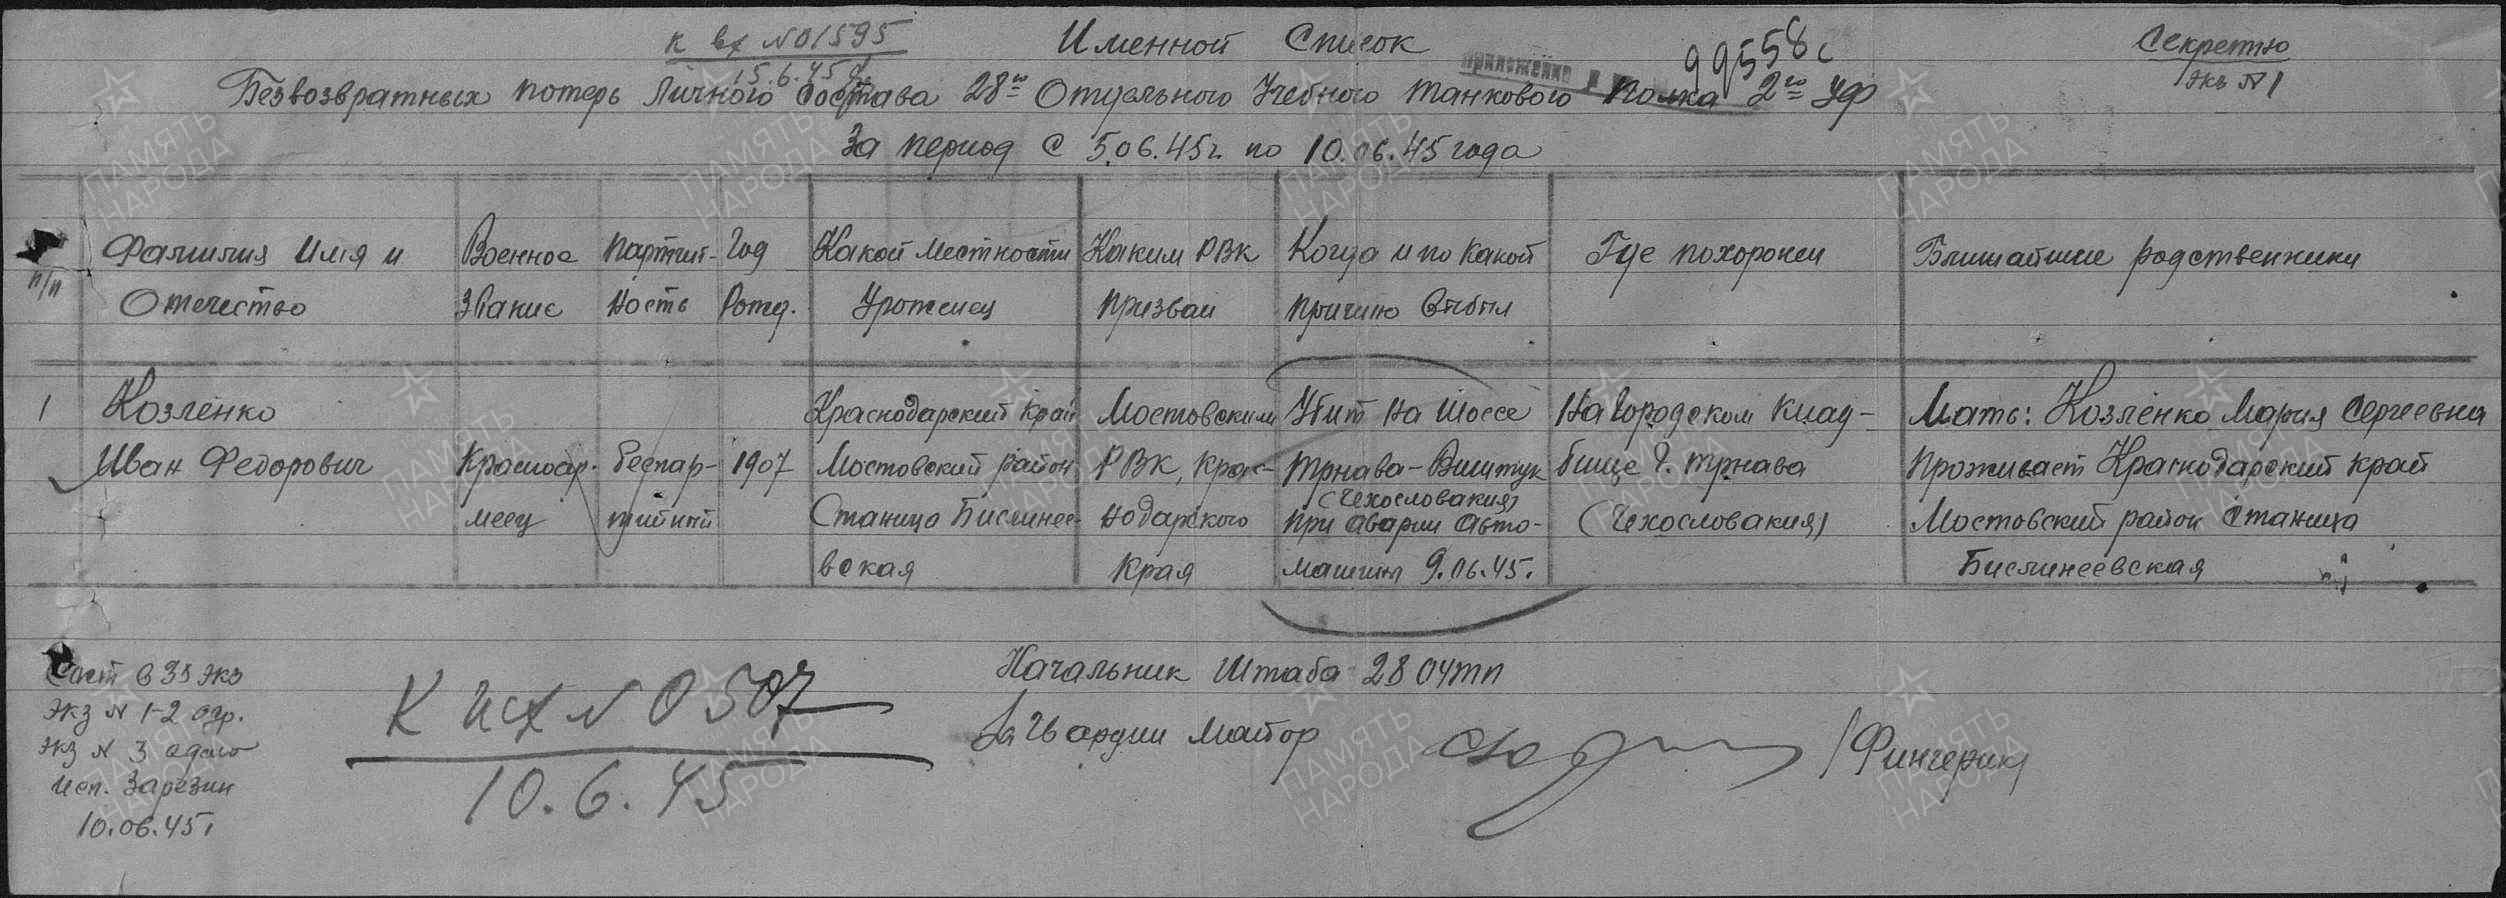 к вх N 01595
15.6.45 г.
Именной Список
Приложение к
99558с
Секретно
Экз N 1
Безвозвратных потерь Личного Состава 28го Отдельного Учебного Танкового Полка 2го УФ
За период с 5.06.45г. по 10.06.45 года
п/п
Фамилия Имя и Отчество
Военное Звание
Партийность
Год Рожд.
Какой Местности Уроженец
Каким РВК Призван
Когда и по какой причине Выбыл
Где похоронен
Ближайшие родственники
1
Козленко
Иван Федорович
Красноар-
меец
беспар-
тийный
1907
Краснодарский край
Мостовский район
Станица Бислинее-
вская
Мостовским
РВК, Крас-
нодарского
Края
Убит на шоссе
Трнава-Виштук
(Чехословакия)
при аварии авто-
машины 9.06.45.
На городском клад-
бище г. Трнава
(Чехословакия)
Мать: Козленко Мария Сергеевна
Проживает Краснодарский край
Мостовский район Станица
Бислинеевская
Начальник Штаба 28 ОУТП
Гвардии Майор
/Финчерик/
К исх N 0507
10.6.45
в 3х экз
Экз N 1-2 адр.
Экз N 3 дело
Исп. Зарезин
10.06.45г
ПАМЯТЬ
НАРОДА